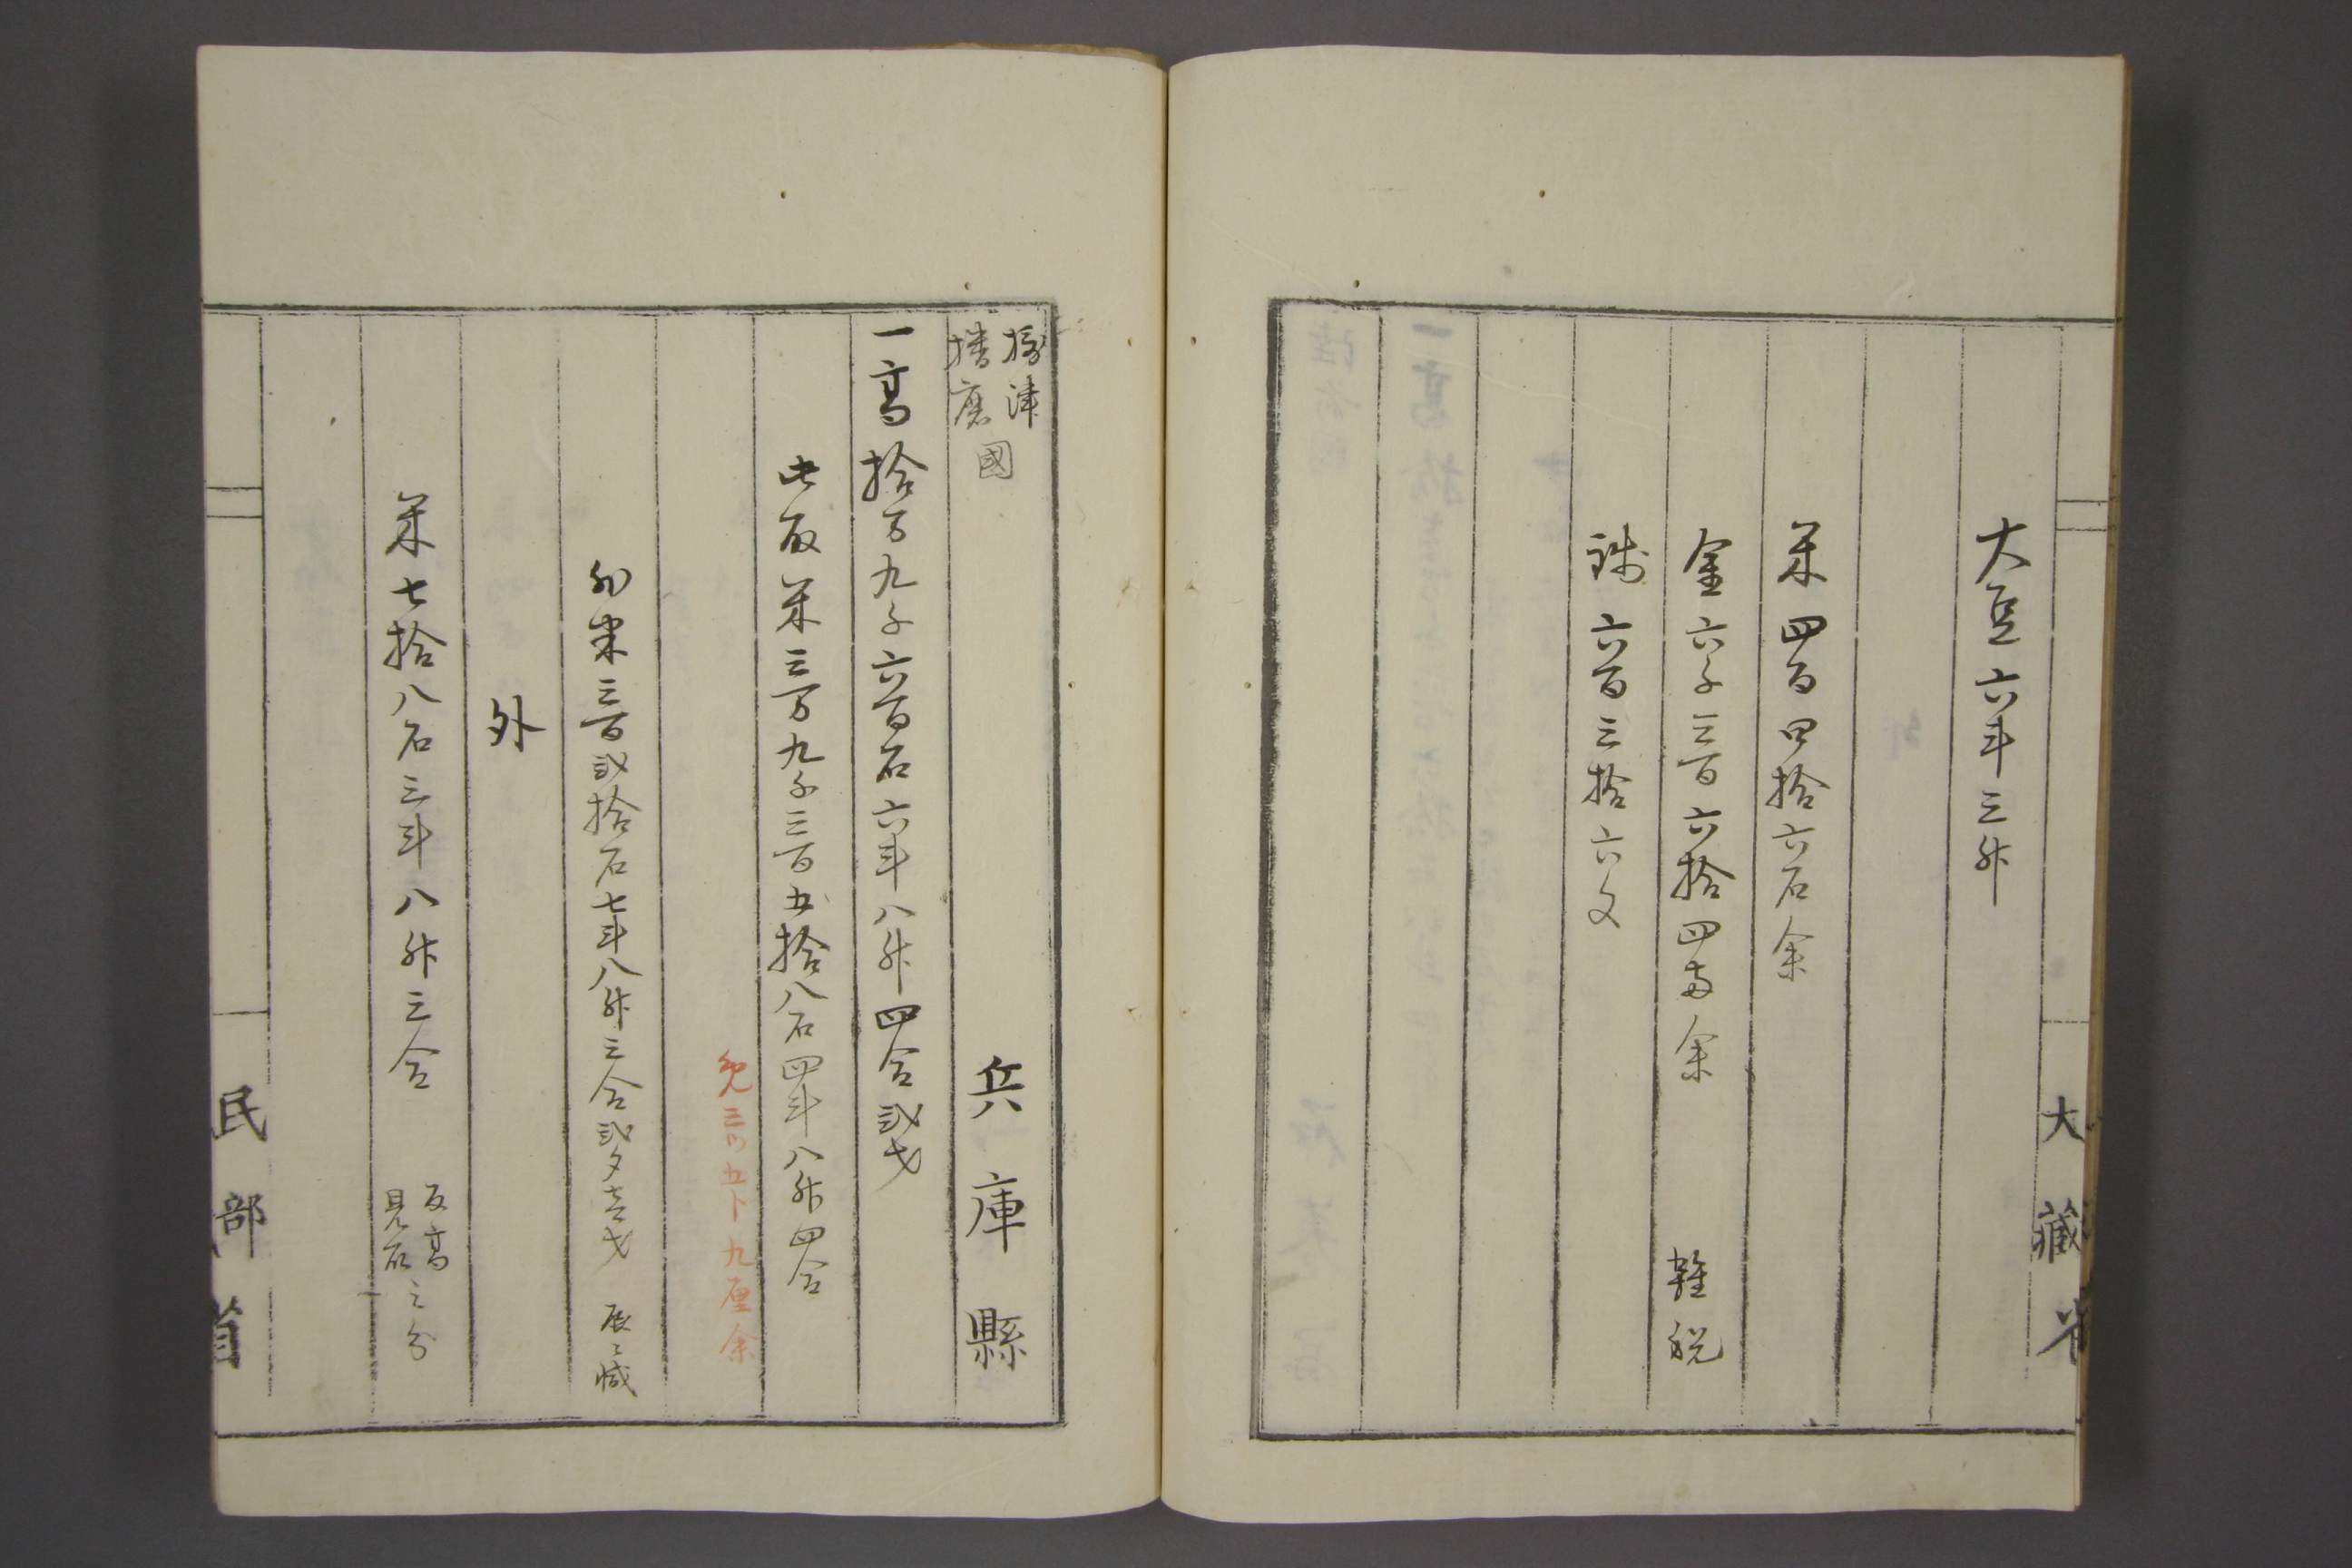 大藏省
大豆六斗三升
米四百四拾六石余
金六千三百六拾四両余　雑税
銭六百三拾六文
摂津
播磨
國　兵庫縣
一高拾万九千六百石六斗八升四合弐才
此取米三万九千三百五拾八石四斗八升四合
免三ツ五分九厘余
米三百弐拾石七斗八升三合弐夕壱才　辰減
外
米七拾八石三斗八升三合　反高
見取
之分
民部省